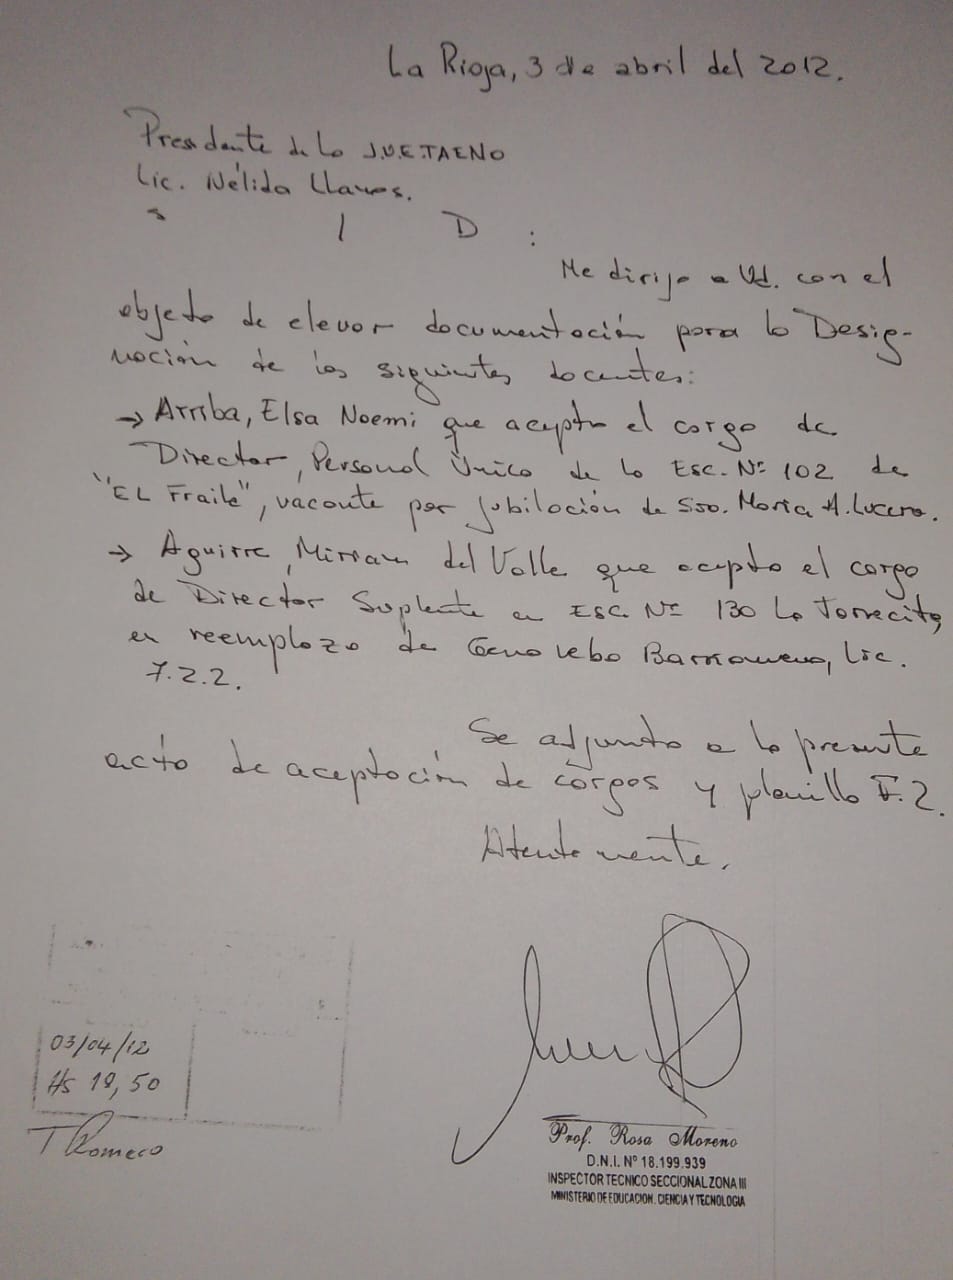 La Rioja, 3 de abril del 2012.
Presidente de la J.U.E.TAENO
Lic. Nélida Llanos.
S / D :
Me dirijo a Ud. con el
objeto de elevar documentación para la Desig-
nación de los siguientes docentes:
→ Arriba, Elsa Noemi que acepta el cargo de
Director, Personal Único de la Esc. Nº 102 de
"EL Fraile", vacante por jubilación de Sra. María A. Lucero.
→ Aguirre, Miriam del Valle que acepta el cargo
de Director Suplente en ESC. Nº 130 La Torrecita,
en reemplazo de Barrionuevo, Lic.
7.2.2.
Se adjunta a la presente
acta de aceptación de cargos y planilla F.2.
Atentamente.
03/04/12
Hs 19,50
T Romero
Prof. Rosa Moreno
D.N.I. Nº 18.199.939
INSPECTOR TECNICO SECCIONAL ZONA III
MINISTERIO DE EDUCACION, CIENCIA Y TECNOLOGIA